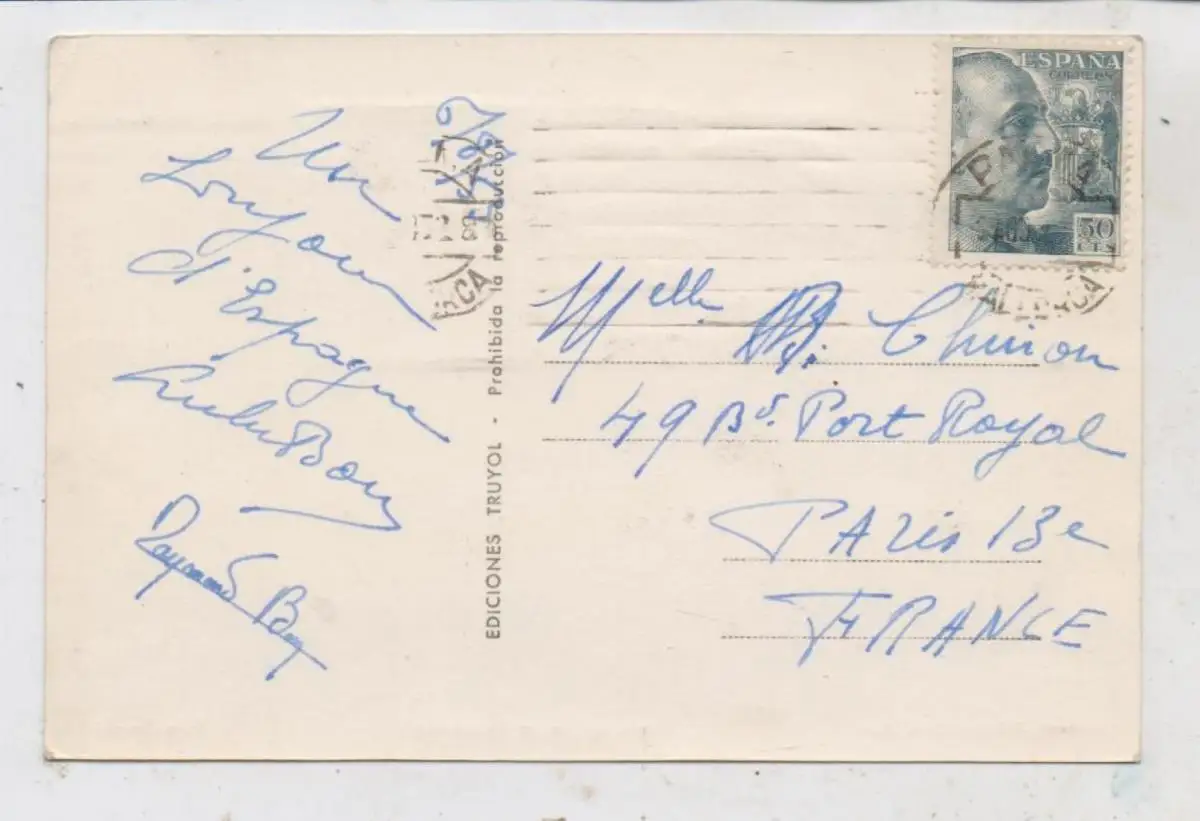 Un
bonjour
d'Espagne
Raymond
EDICIONES TRUYOL - Prohibida la reproducción
ESPAÑA
CORREOS
50
CTS
PALMA
MALLORCA
RCA
Melle B. Chinon
49 Bd. Port Royal
PARIS 13e
FRANCE